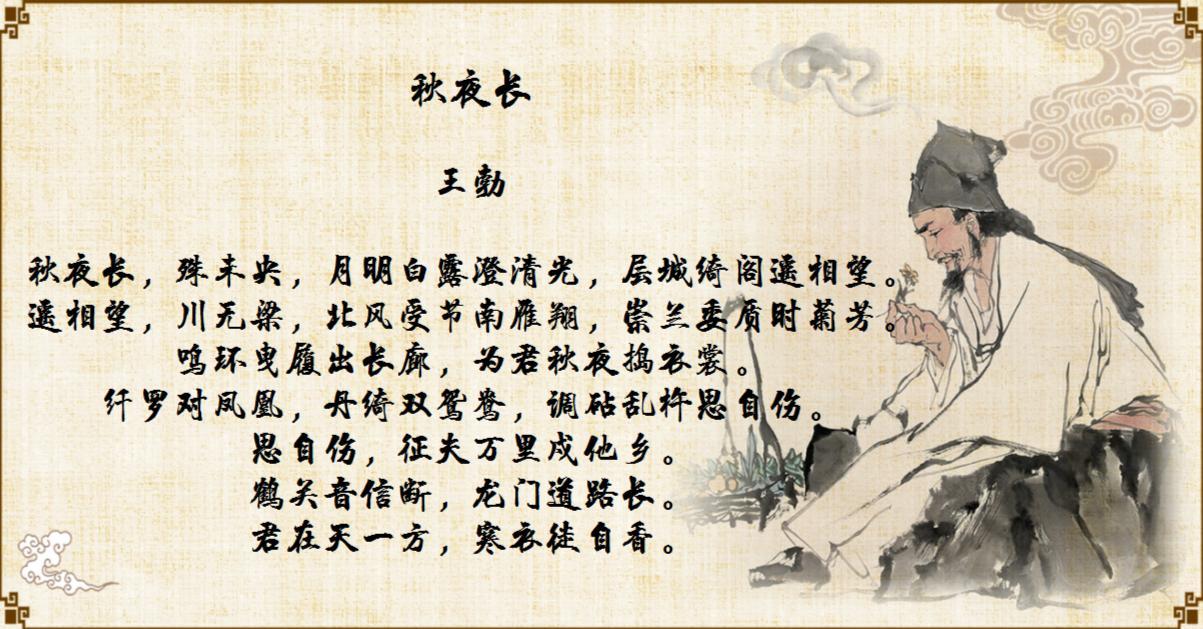 秋夜长
王勃
秋夜长，殊未央，月明白露澄清光，层城绮阁遥相望。
遥相望，川无梁，北风受节南雁翔，崇兰委质时菊芳。
鸣环曳履出长廊，为君秋夜捣衣裳。
纤罗对凤凰，丹绮双鸳鸯，调砧乱杵思自伤。
思自伤，征夫万里戍他乡。
鹤关音信断，龙门道路长。
君在天一方，寒衣徒自香。